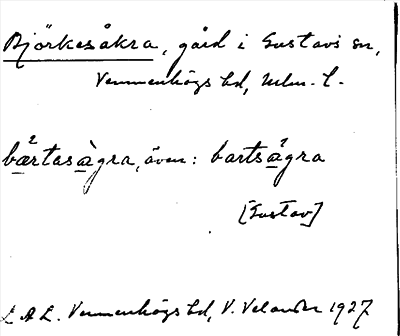 Björkesåkra, gård i Gustavs sn,
Vemmenhögs hd, Mlm. l.
bærtasàgra, även: bartságra
[Gustav]
L A L. Vemmenhögs hd, V. Velander 1927